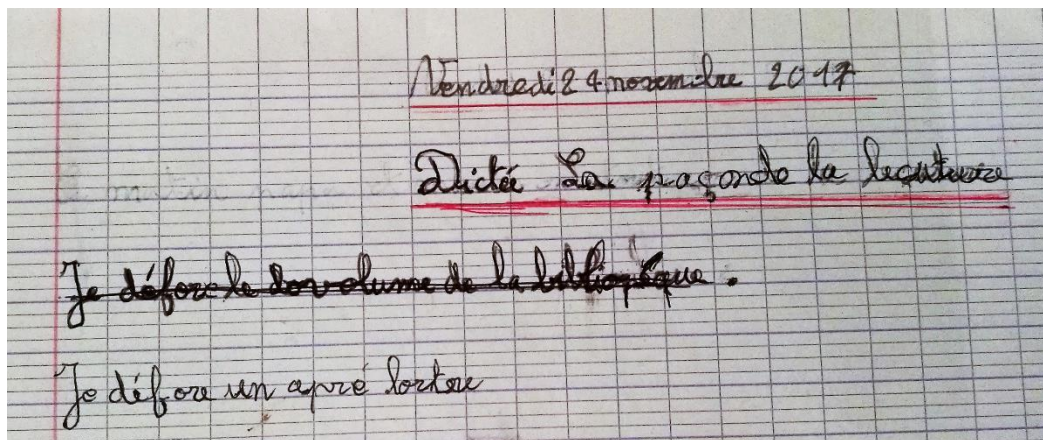 Vendredi 24 novembre 2017
Dictée La paçonde la lecutuere
Je défore le dovolume de la
Je défore un apré lortere